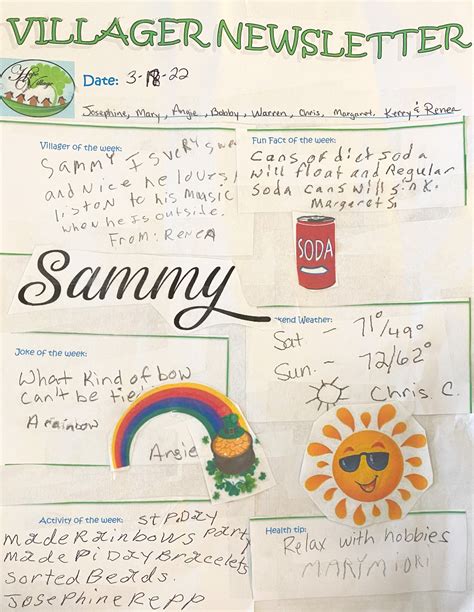 VILLAGER NEWSLETTER
Date: 3-18-22
Josephine, Mary, Angie, Bobby, Warren, Chris, Margaret, Kerry & Renea
Villager of the week:
SAMMY IS VERY Swee
and Nice he loves
liston to his music
when he is outside.
From: RENEA
Fun Fact of the week:
Cans of dict soda
will float and Regular
soda cans will sink.
Margaret S.
SODA
Sammy
kend Weather:
Sat - 71°/49°
Sun. - 72/62°
Chris C.
Joke of the week:
What Kind of bow
can't be tie
A rainbow
Angie
Activity of the week: St P. Day
made Rainbows Party
made Pi Day Bracelets
Sorted Beads.
Josephine Repp
Health tip:
Relax with hobbies
MARY MIORI